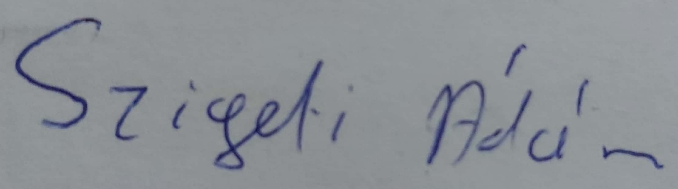 Szigeti Ádám